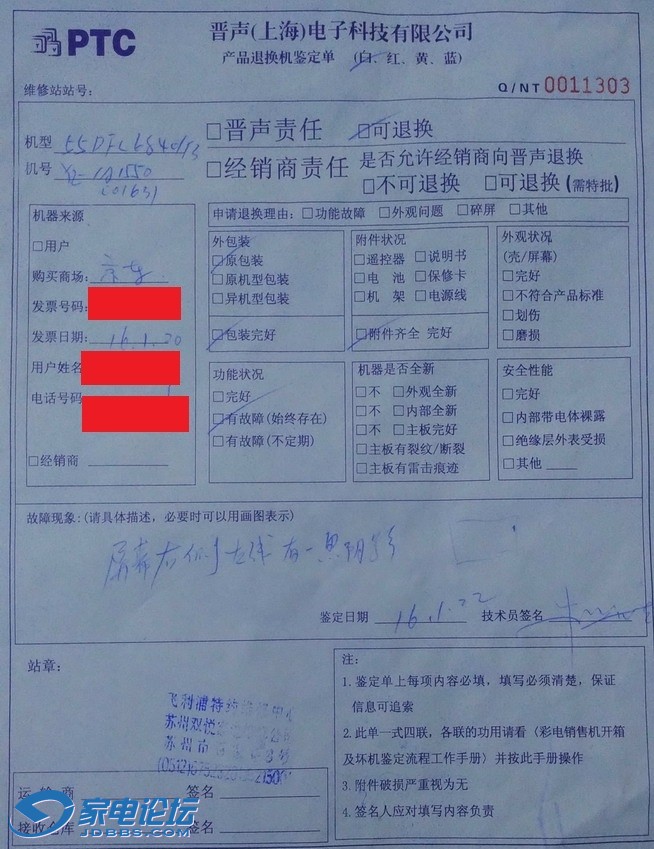 PTC
晋声(上海)电子科技有限公司
产品退换机鉴定单 (白、红、黄、蓝)
维修站站号:
Q/NT 0011303
机型
机号
□晋声责任 □可退换
□经销商责任 是否允许经销商向晋声退换
□不可退换 □可退换(需特批)
机器来源
□用户
购买商场:
发票号码:
发票日期: 16.1.20
用户姓名
电话号码
□经销商
申请退换理由: □功能故障 □外观问题 □碎屏 □其他
外包装
□原包装
□原机型包装
□异机型包装
□包装完好
附件状况
□遥控器 □说明书
□电 池 □保修卡
□机 架 □电源线
□附件齐全 完好
外观状况
(壳/屏幕)
□完好
□不符合产品标准
□划伤
□磨损
功能状况
□完好
□有故障(始终存在)
□有故障(不定期)
机器是否全新
□不 □外观全新
□不 □内部全新
□不 □主板完好
□主板有裂纹/断裂
□主板有雷击痕迹
安全性能
□完好
□内部带电体裸露
□绝缘层外表受损
□其他
故障现象:(请具体描述，必要时可以用画图表示)
屏幕右侧 有一黑阴影
鉴定日期 16.1.22 技术员签名
站章:
飞利浦特约维修中心
苏州双悦
苏州市
注:
1. 鉴定单上每项内容必填，填写必须清楚，保证
信息可追索
2. 此单一式四联，各联的功用请看《彩电销售机开箱
及坏机鉴定流程工作手册》并按此手册操作
3. 附件破损严重视为无
4. 签名人应对填写内容负责
运输商 签名
接收仓库 签名
家电论坛
JDBBS.COM